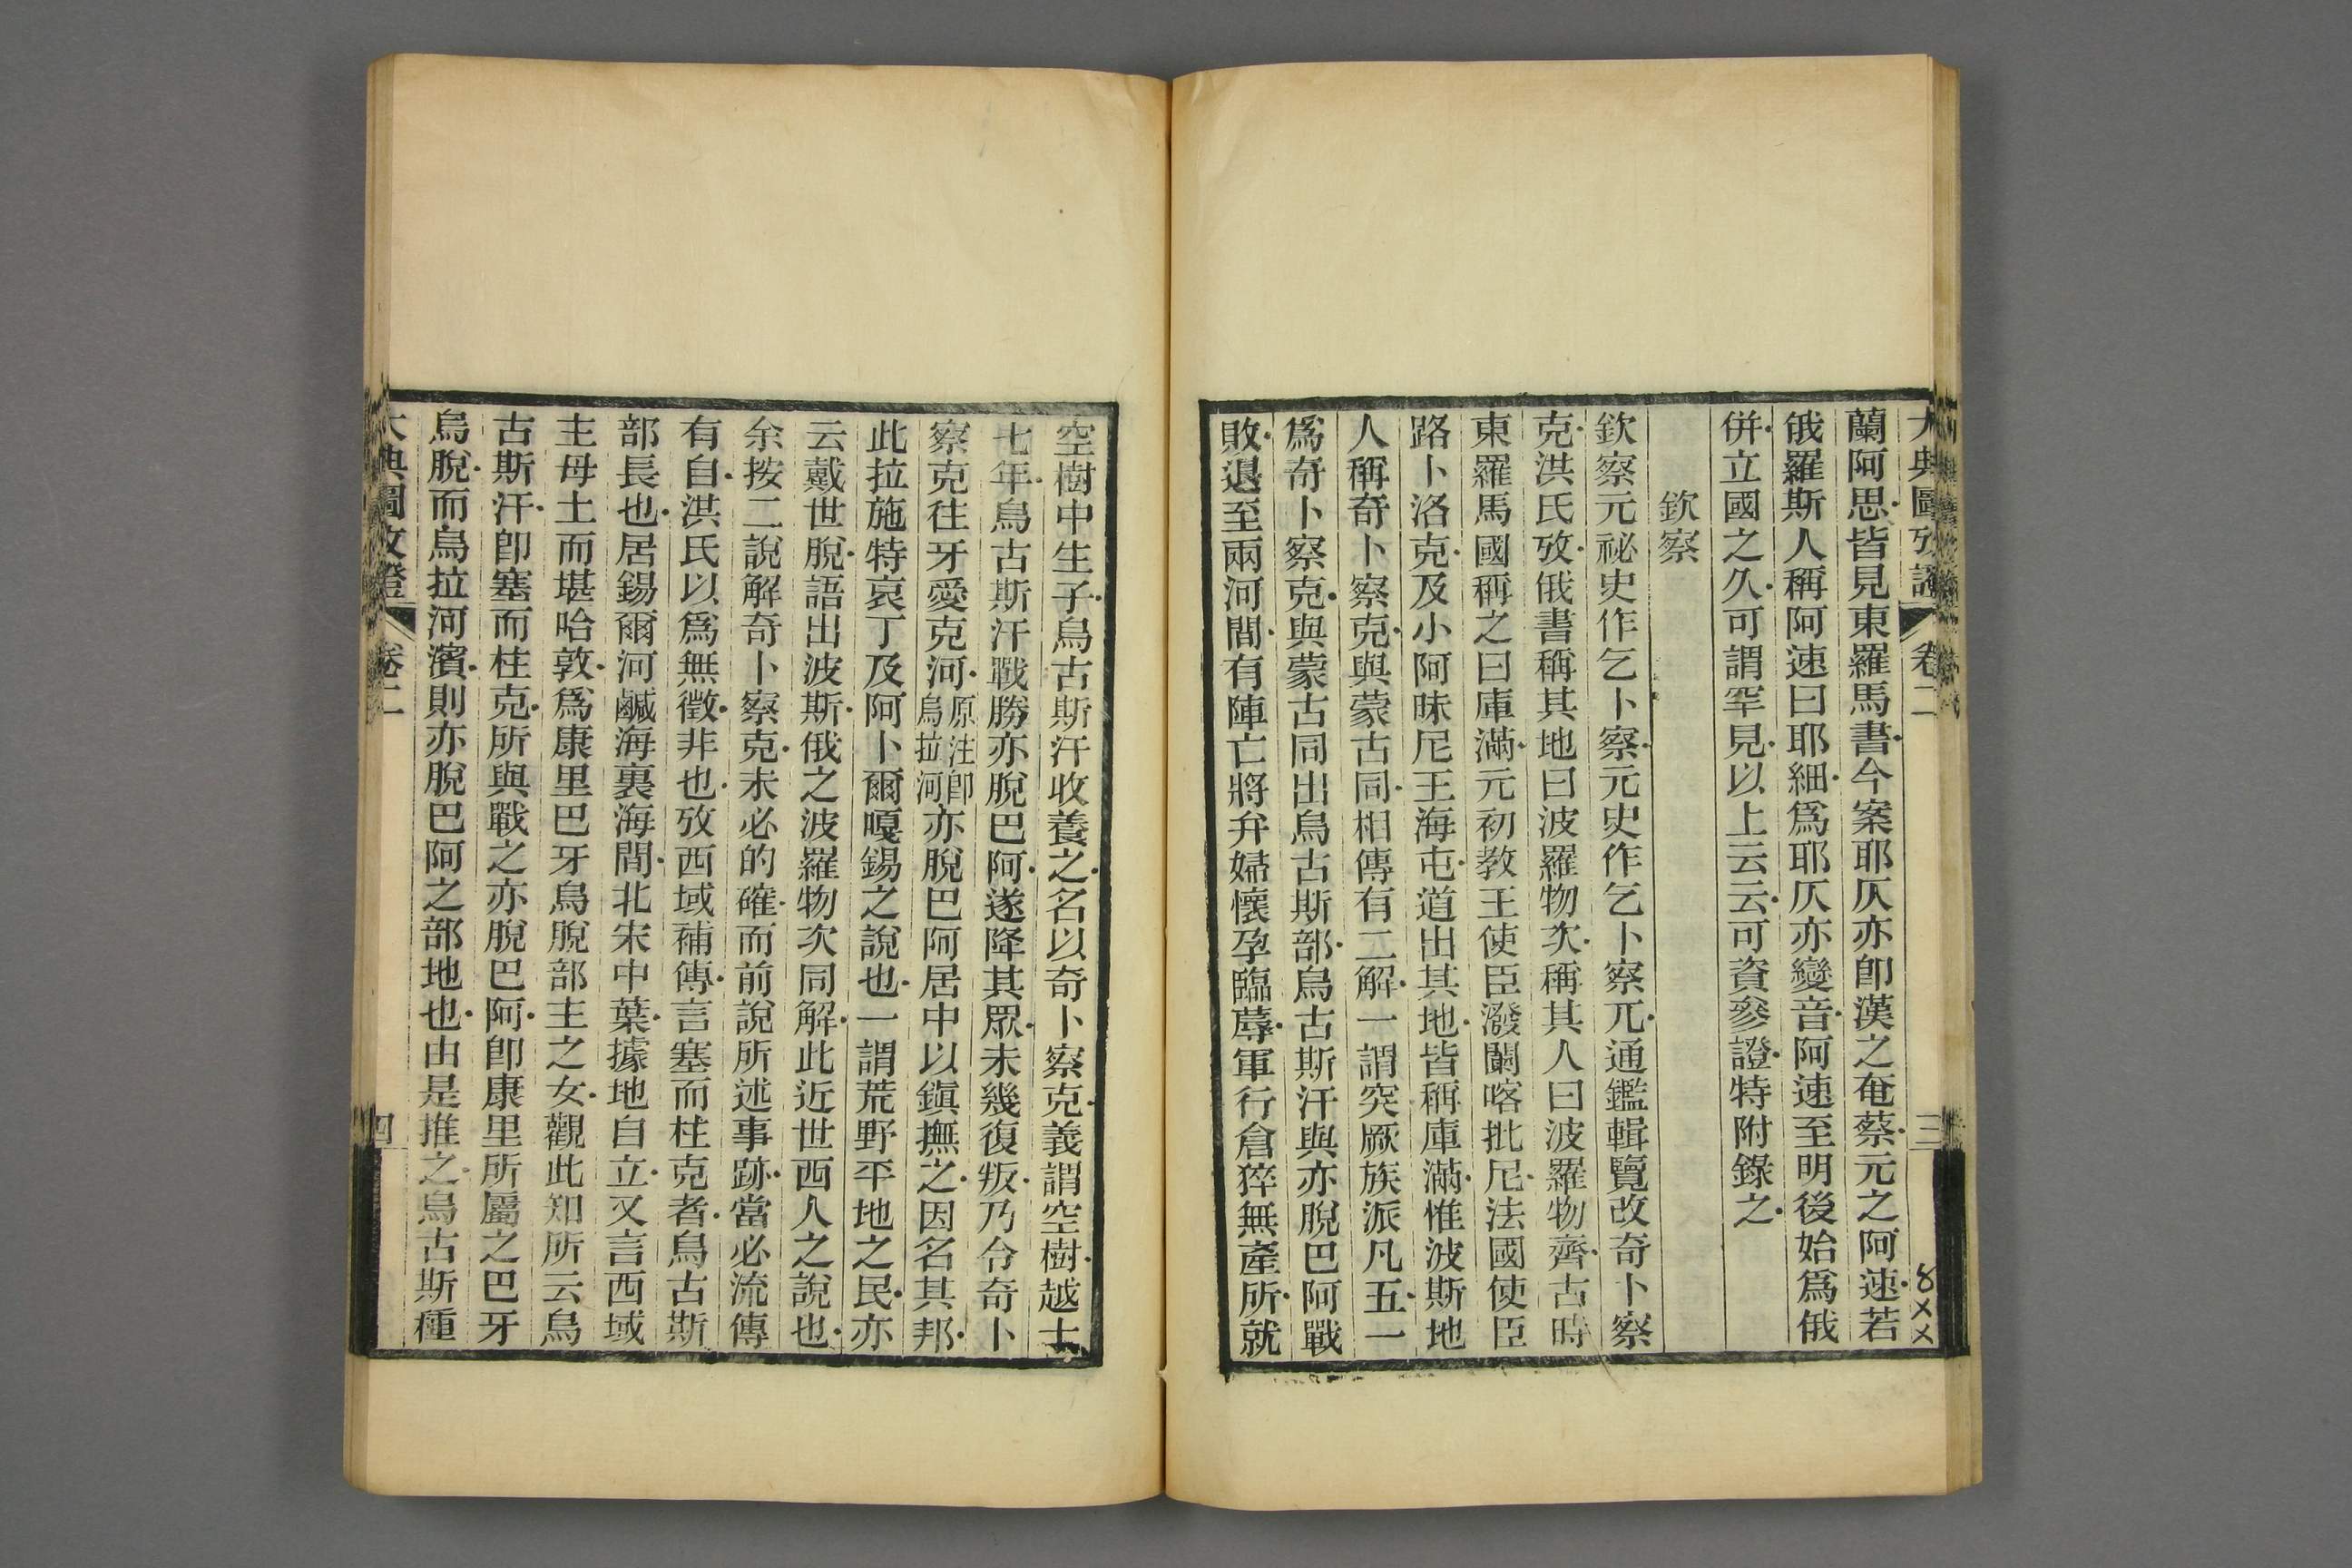 大典圖攷證 卷二 三
蘭阿思皆見東羅馬書今案耶仄亦卽漢之奄蔡元之阿速若
俄羅斯人稱阿速曰耶細爲耶仄亦變音阿速至明後始爲俄
併立國之久可謂罕見以上云云可資參證特附錄之
欽察
欽察元祕史作乞卜察元史作乞卜察兀通鑑輯覽改奇卜察
克洪氏攷俄書稱其地曰波羅物次稱其人曰波羅物齊古時
東羅馬國稱之曰庫滿元初教王使臣潑闌喀批尼法國使臣
路卜洛克及小阿昧尼王海屯道出其地皆稱庫滿惟波斯地
人稱奇卜察克與蒙古同相傳有二解一謂突厥族派凡五一
爲奇卜察克與蒙古同出烏古斯部烏古斯汗與亦脫巴阿戰
敗退至兩河間有陣亡將弁婦懷孕臨蓐軍行倉猝無產所就
空樹中生子烏古斯汗收養之名以奇卜察克義謂空樹越十
七年烏古斯汗戰勝亦脫巴阿遂降其眾未幾復叛乃令奇卜
察克往牙愛克河原注卽烏拉河亦脫巴阿居中以鎭撫之因名其邦
此拉施特哀丁及阿卜爾嘎錫之說也一謂荒野平地之民亦
云戴世脫語出波斯俄之波羅物次同解此近世西人之說也
余按二說解奇卜察克未必的確而前說所述事跡當必流傳
有自洪氏以爲無徵非也攷西域補傳言塞而柱克者烏古斯
部長也居錫爾河鹹海裏海間北宋中葉據地自立又言西域
主母土而堪哈敦爲康里巴牙烏脫部主之女觀此知所云烏
古斯汗卽塞而柱克所與戰之亦脫巴阿卽康里所屬之巴牙
烏脫而烏拉河濱則亦脫巴阿之部地也由是推之烏古斯種
大典圖攷證 卷二 四
8××